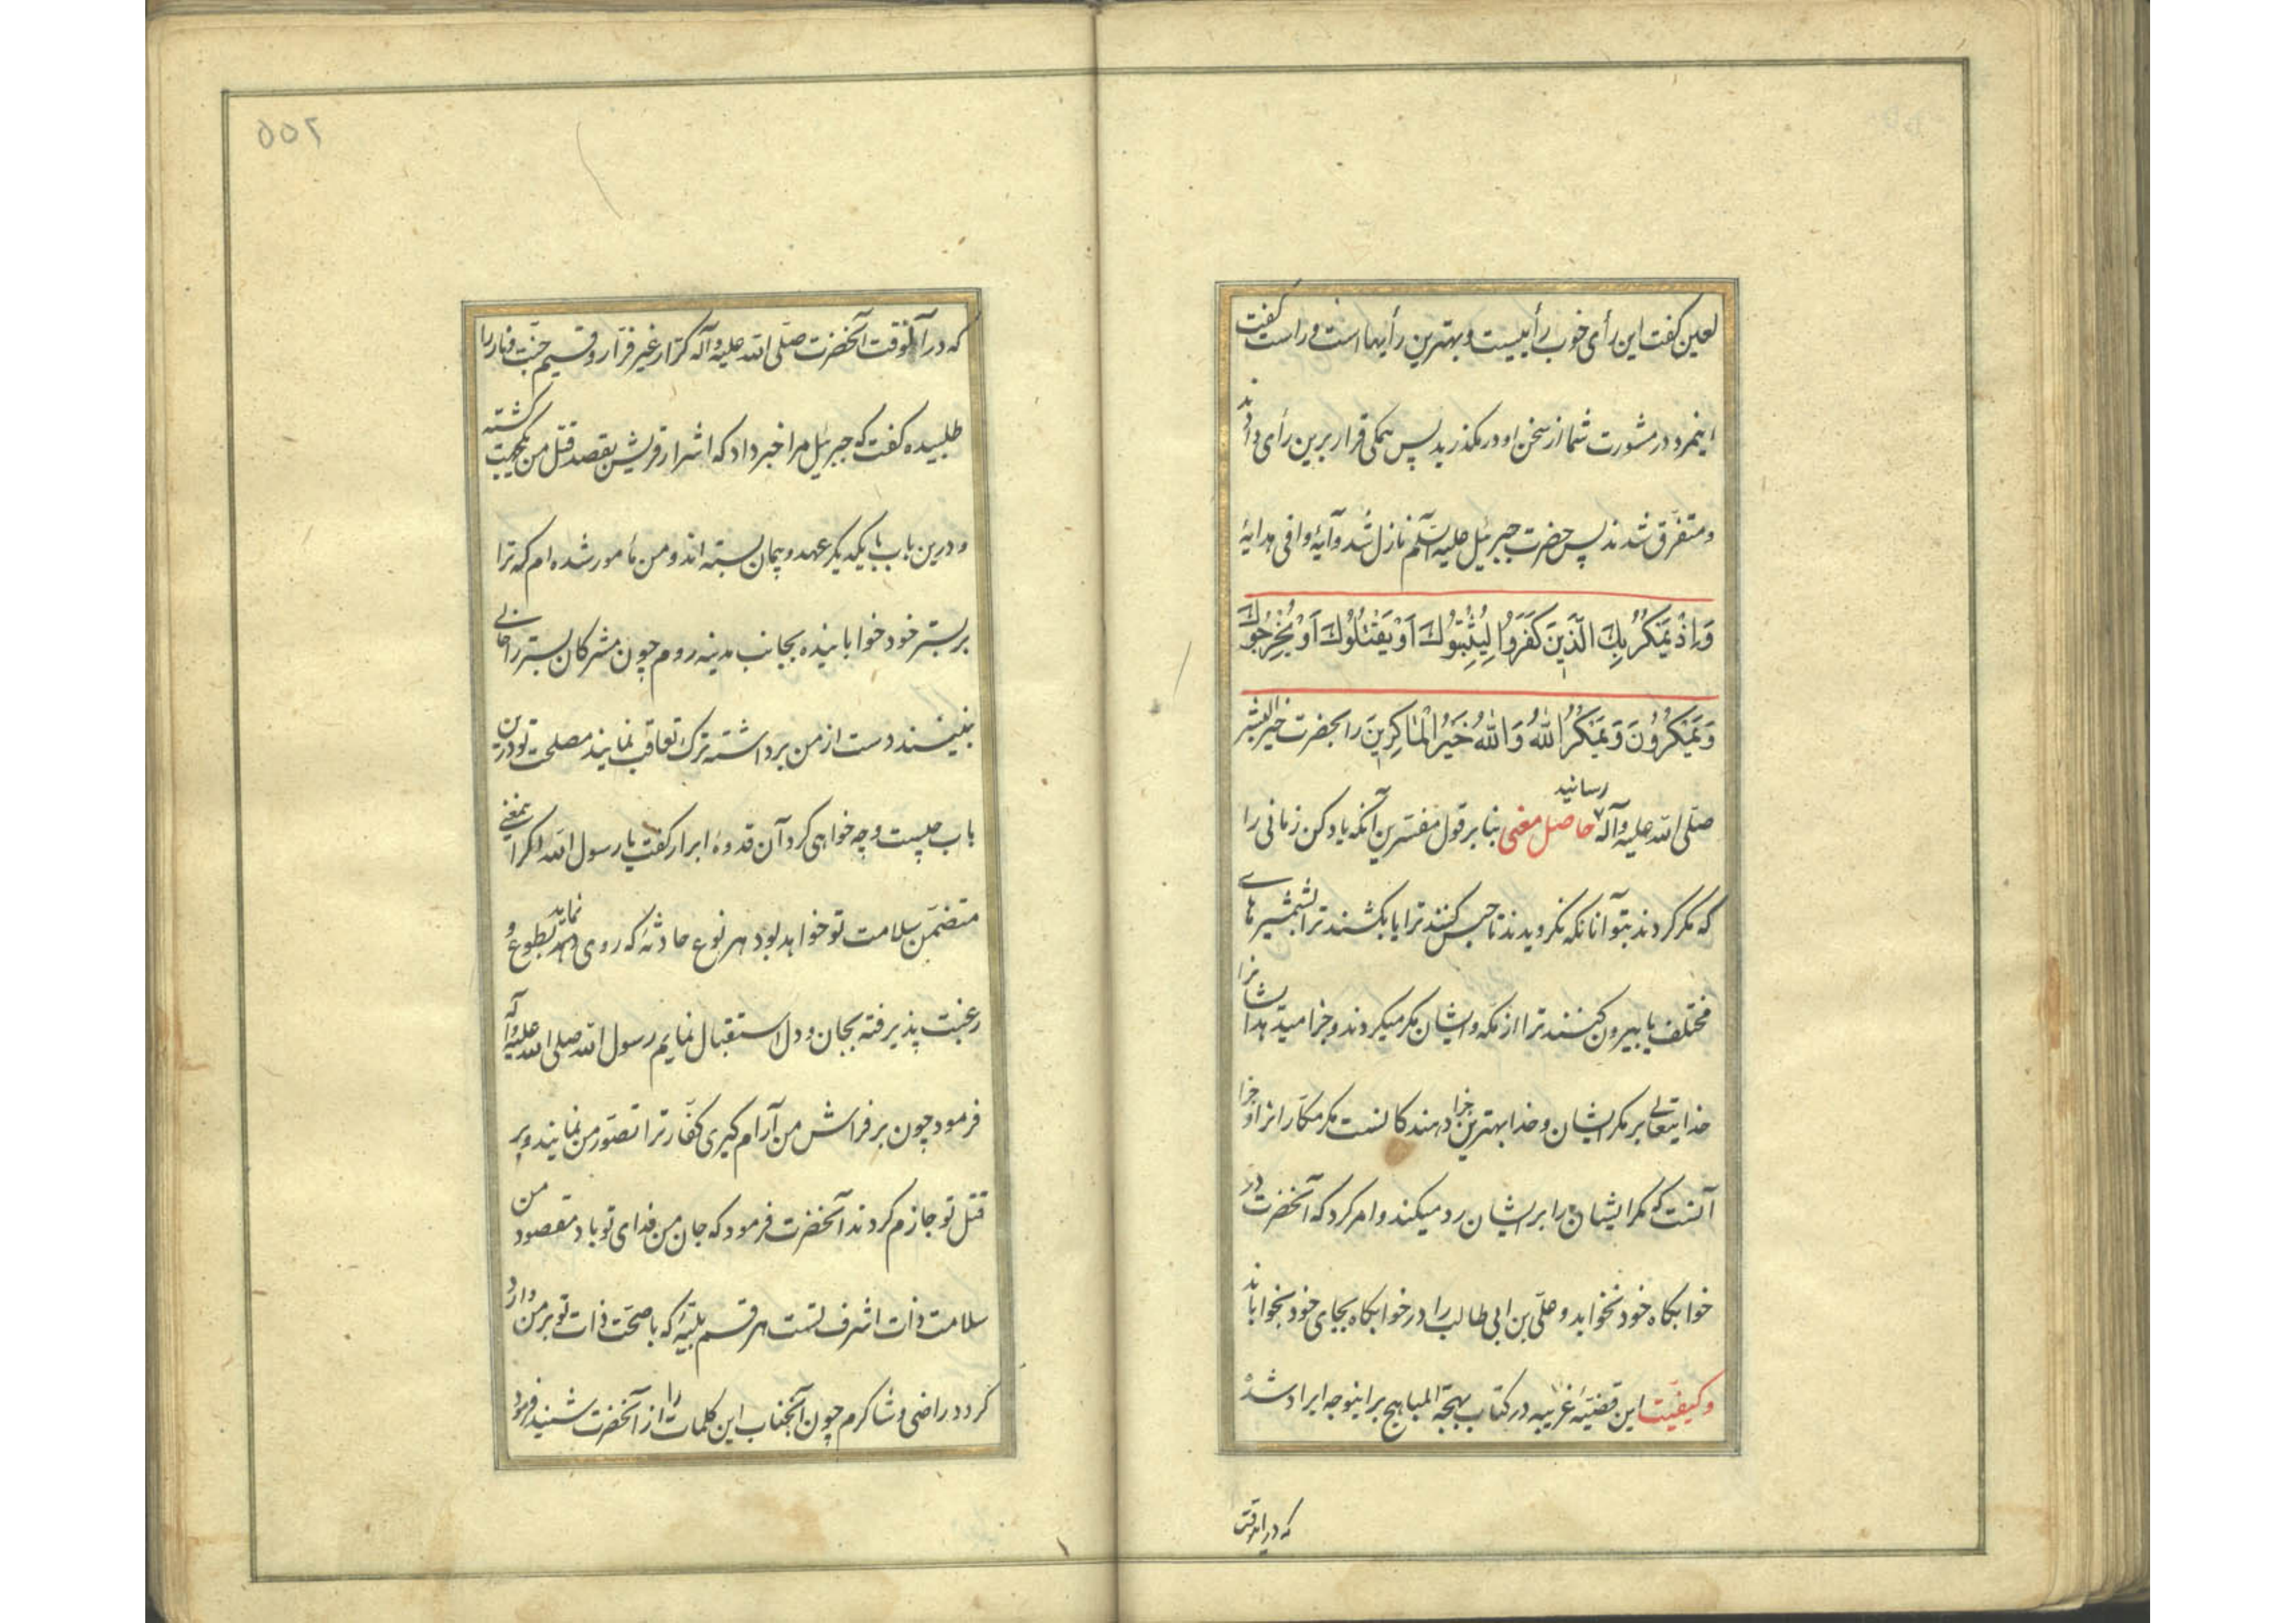 لعین گفت این رأی خوب رأییست و بهترین رأیها است و راست گفت
اینمرد در مشورت شما از سخن او در مگذرید پس همگی قرار برین رأی دادند
و متفرّق شدند پس حضرت جبرئیل علیه السّلم نازل شد و آیهٔ وافی هدایهٔ
وَاِذْ یَمْکُرُ بِكَ الَّذینَ کَفَرُوا لِیُثْبِتُوكَ اَوْ یَقْتُلُوكَ اَوْ یُخْرِجُوكَ
وَ یَمْکُرُونَ وَ یَمْکُرُ اللّٰهُ وَ اللّٰهُ خَیْرُ الْمٰاکِرینَ را بحضرت خیر البشر
صلّی الله علیه و آله رسانید حاصل معنی بنا بر قول مفسّرین آنکه یاد کن زمانی را
که مکر کردند بتو آنانکه نگرویدند تا حبس کنند ترا یا بکشند ترا بشمشیرهای
مختلف یا بیرون کنند ترا از مکّه و ایشان مکر میکردند و جزا میدهد ایشانرا
خدایتعالی بر مکر ایشان و خدا بهترین جزا دهندکانست مکر مکّارانرا و جزا
آنست که مکر ایشان را بر ایشان رد میکند و امر کرد که آنحضرت در
خوابگاه خود نخوابد و علّی بن ابی طالب را در خوابگاه بجای خود بخواباند
و کیفیّت این قضیّهٔ غریبه در کتاب بهجة المباهج براینوجه ایراد شده
که در آنوقت
۵۵۲
که در آنوقت آنحضرت صلّی الله علیه و آله کرّار غیر فرّار و قسیم جنّت و نار را
طلبیده گفت که جبرئیل مرا خبر داد که اشرار قریش بقصد قتل من یکجهت گشته
و درین باب با یکدیگر عهد و پیمان بسته اند و من مأمور شده ام که ترا
بر بستر خود خوابانیده بجانب مدینه روم چون مشرکان بستر را خالی
نبینند دست از من برداشته ترك تعاقب نمایند مصلحت تو درین
باب چیست و چه خواهی کرد آن قدوهٔ ابرار گفت یا رسول الله اگر اینمعنی
متضمّن سلامت تو خواهد بود هر نوع حادثهٔ که روی نماید بطوع و
رغبت پذیرفته بجان و دل استقبال نمایم رسول الله صلی الله علیه و آله
فرمود چون بر فراش من آرام گیری کفّار ترا تصوّر من نمایند و بر
قتل تو جازم گردند آنحضرت فرمود که جان من فدای تو باد مقصود من
سلامت ذات اشرف تست هر قسم بلیّهٔ که با صحّت ذات تو بر من وارد
گردد راضی و شاکرم چون آنجناب این کلمات را از آنحضرت شنید فرمود